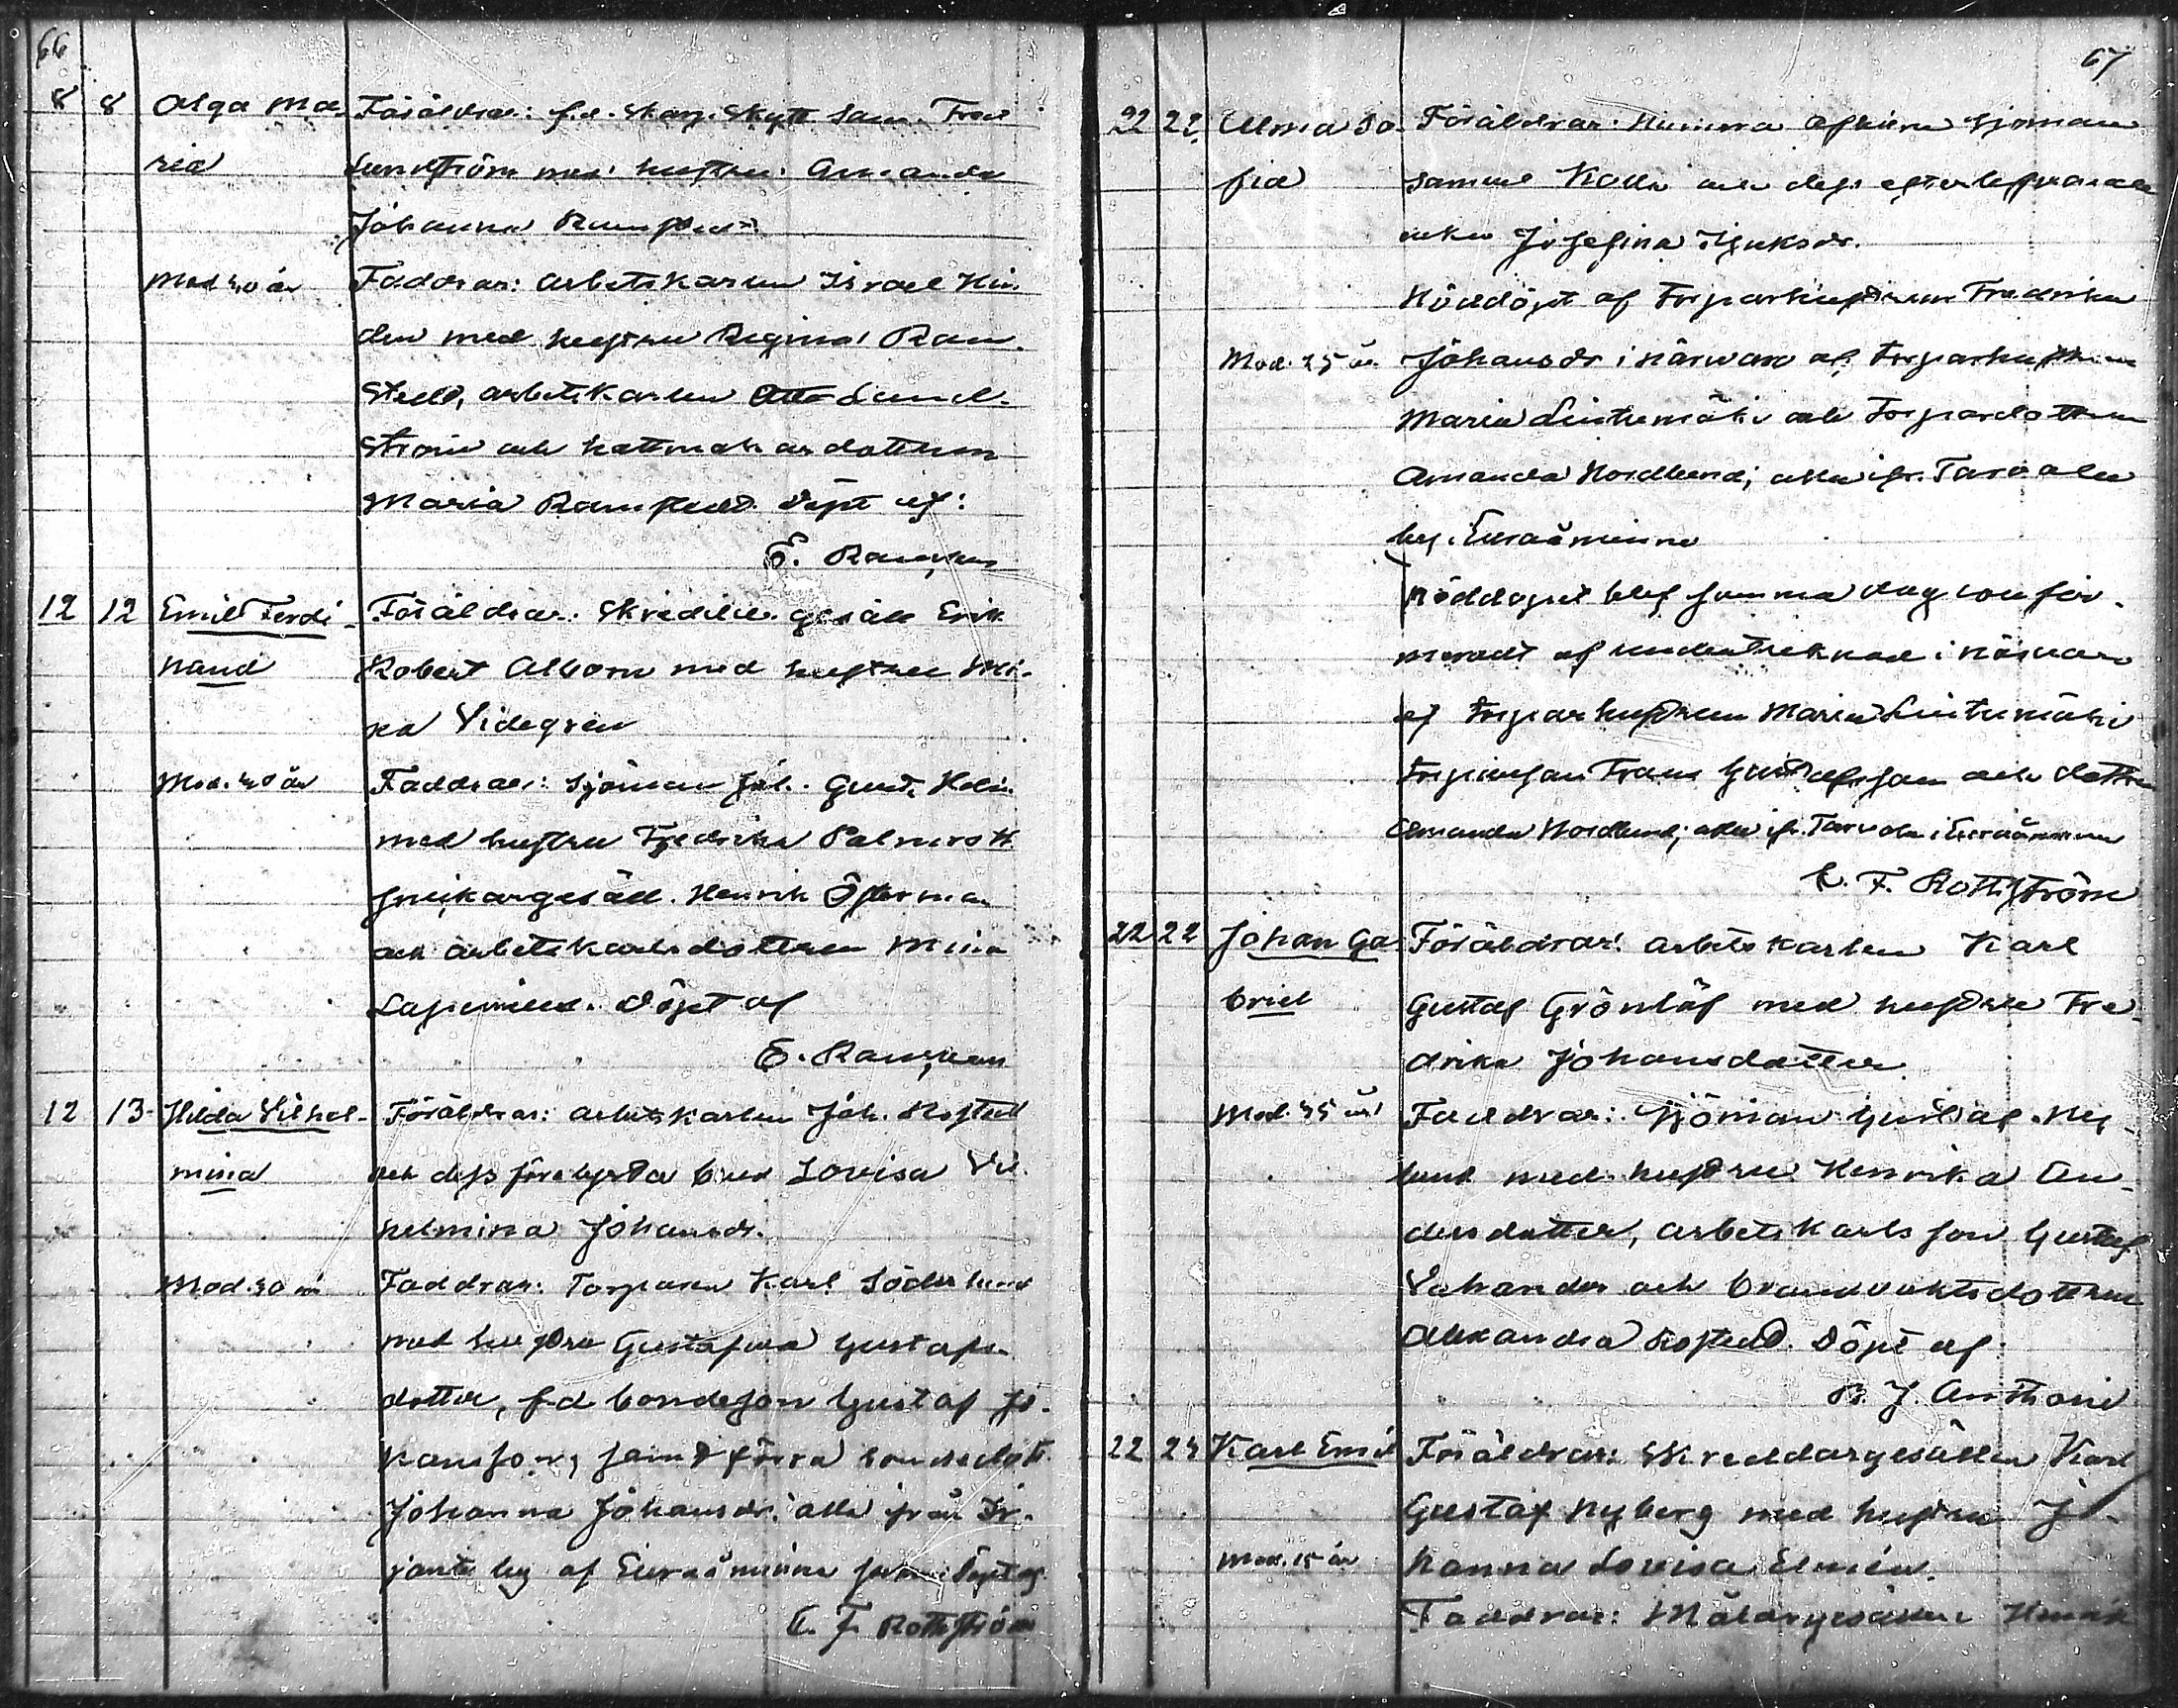 66
8 8 Olga Ma- Föräldrar: f.d. Skarp. Skytt Sam. Fred
ria Lundström med hustru Amanda
Johanna Ramstedt
Mod 40 år Faddrar: arbetskarlen Israel Hin-
den med hustru Regina Ram-
stedt, arbetskarlen Otto Lund-
ström och hattmakaredottren
Maria Ramstedt. Döpt af:
E. Raunman
12 12 Emil Ferdi- Föräldrar: Skrädd. gesäll Erik
nand Robert Alborn med hustru Mi-
na Videgren
Mod. 40 år Faddrar: Sjöman Joh. Gust. Holm
med hustru Fredrika Palmroth
snickargesäll. Henrik Österman
och arbetskarlsdottren Mina
Döpt af
E. Raunman
12 13 Hilda Vilhel- Föräldrar: arbetskarlen Joh. Rostedt
mina och dess förelysta brud Lovisa Vil-
helmina Johansdr.
Mod. 30 år Faddrar: Torparen Karl Söderlund
med hustru Gustafva Gustafs-
dotter, f.d bondeson Gustaf Jo-
hansson, samt förra bondedott.
Johanna Johansdr. alla från Ir-
jante by af Euraåminne socken: Döpt af
C. F. Rothström
67
22 22 Alma So- Föräldrar: Numera aflidne sjöman
fia Samuel Kalla och dess efterlefvande
enka Josefina Isaksdr.
Nöddöpt af Torparhustrun Fredrika
Mod. 25 år Johansdr i närvaro af Torparhustrun
Maria Lintumäki och Torpardottren
Amanda Nordlund; alla ifr. Tarvola
by i Euraåminne
Nöddopet blef samma dag confir-
meradt af undertecknad i närvaro
af Torparhustrun Maria Lintumäki
Torparson Frans Gustafsson och dottren
Amanda Nordlund; alla ifr. Tarvola i Euraåminne
C. F. Rothström
22 22 Johan Ga- Föräldrar: arbetskarlen Karl
briel Gustaf Grönlöf med hustru Fre-
drika Johansdotter.
Mod. 35 år Faddrar: Sjöman Gustaf Ny-
lund med hustru Henrika An-
dersdotter, arbetskarls son Gustaf
och brandvaktsdottren
Alexandra Rostedt. Döpt af
R. J. Anthoni
22 24 Karl Emil Föräldrar: Skreddargesällen Karl
Gustaf Nyberg med hustru Jo-
Mod. 25 år hanna Lovisa Elmén.
Faddrar: Målargesällen Henrik